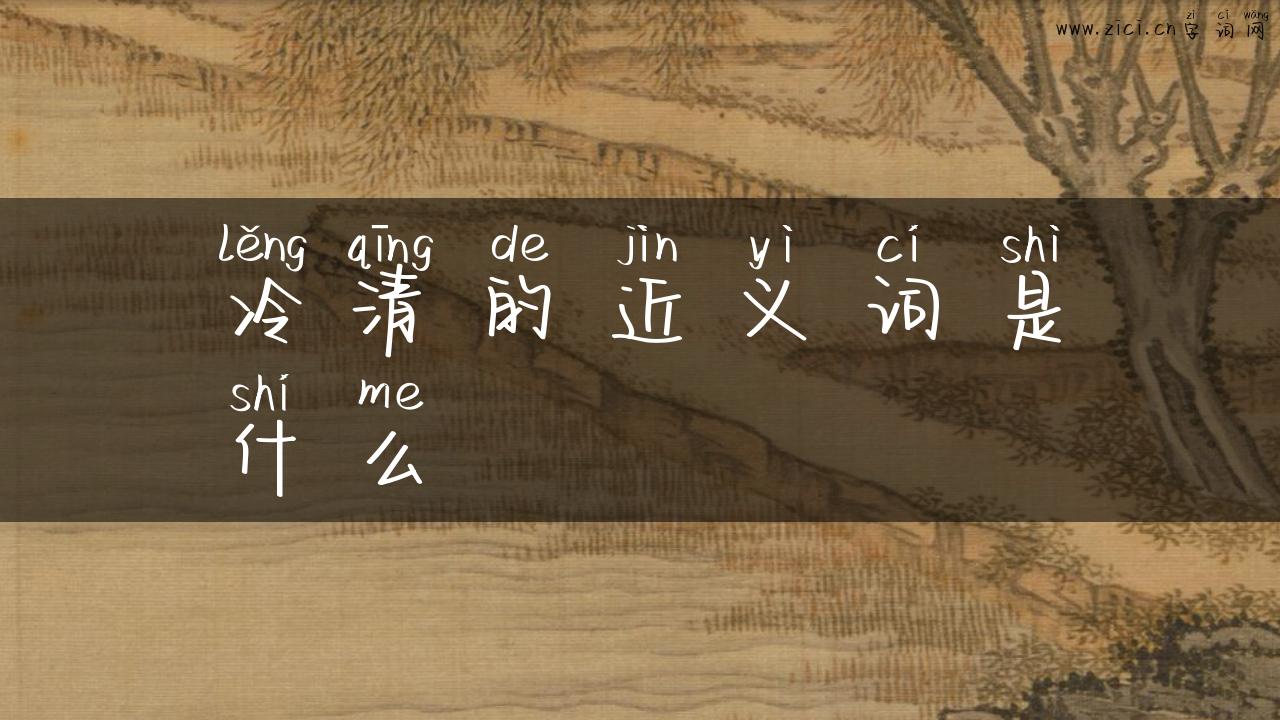 zì cí wǎng
www.zici.cn 字 词 网
lěng qīng de jìn yì cí shì
冷 清 的 近 义 词 是
shí me
什 么